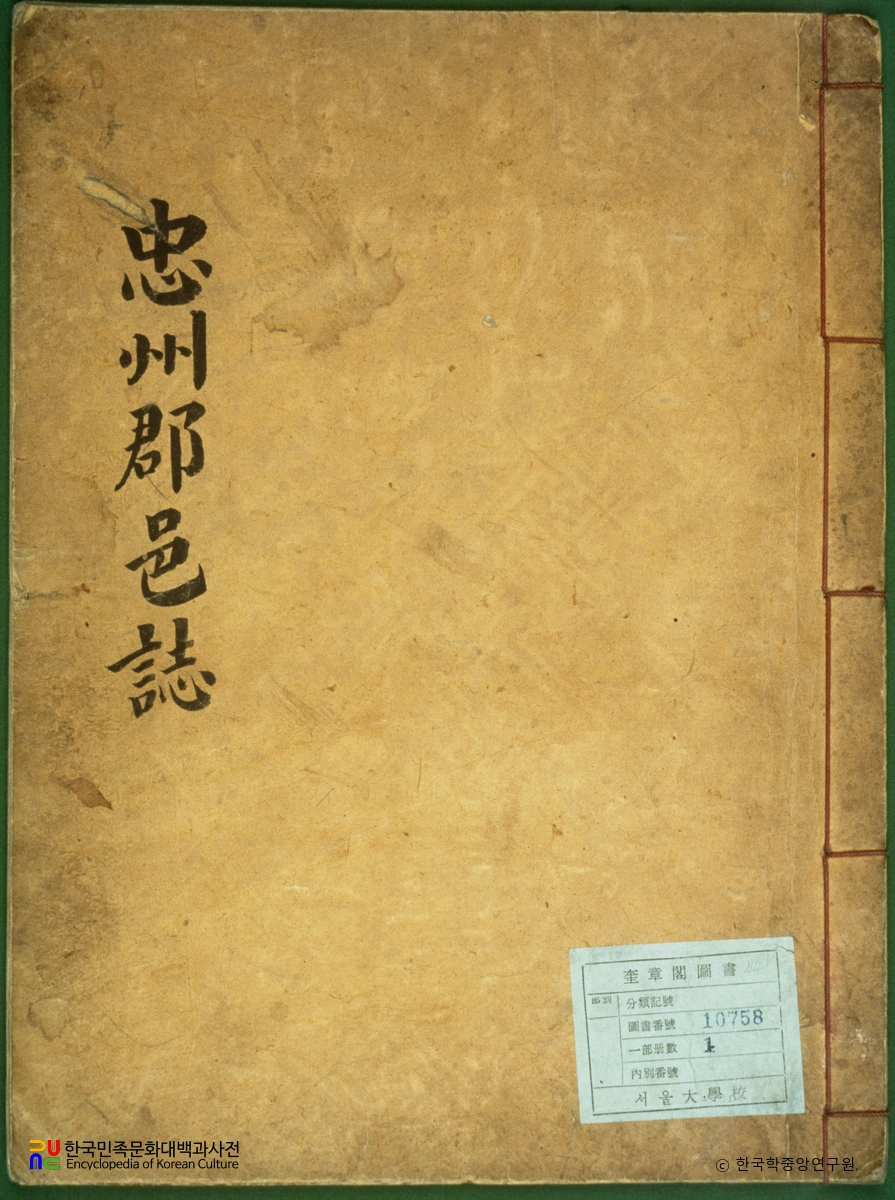 忠州郡邑誌
奎章閣圖書
部別
分類記號
圖書番號 10758
一部册數 1
內別番號
서울大學校
한국민족문화대백과사전
Encyclopedia of Korean Culture
© 한국학중앙연구원